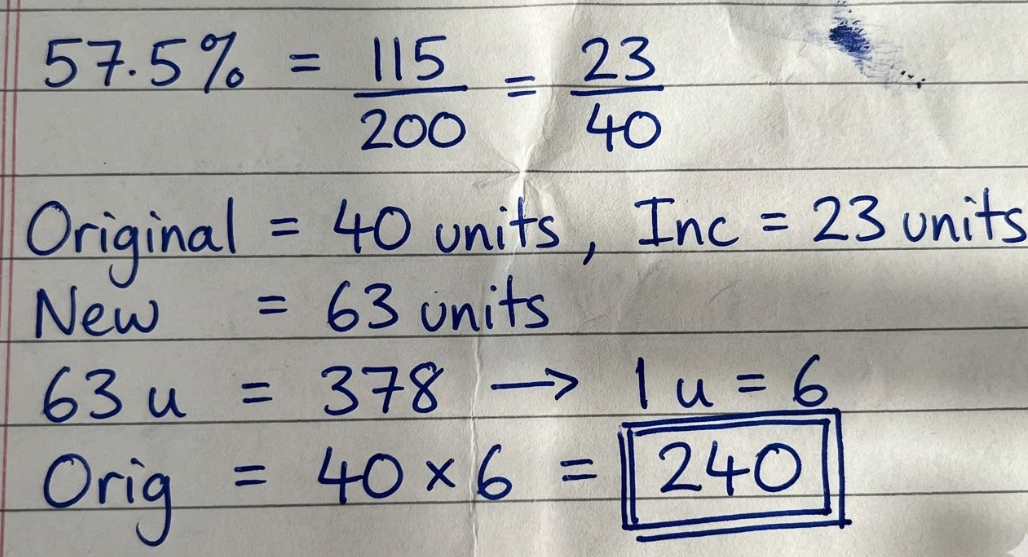 57.5% = 115/200 = 23/40
Original = 40 units, Inc = 23 units
New = 63 units
63 u = 378 → 1 u = 6
Orig = 40 × 6 = 240